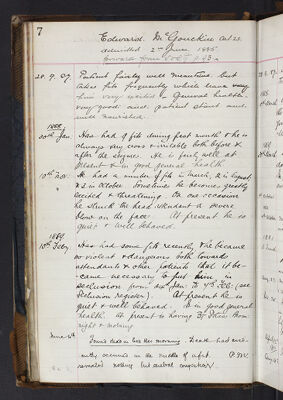 7
Edward Mc Guckin aet 23
admitted 2nd June 1885
Forward from Vol I P. 93
28. 9. 87. Patient fairly well nourished but
takes fits frequently which leave very
him very excited General health
very good and patient stout and
well nourished.
1888
20th Jan. Has had 9 fits during past month & he is
always very cross & irritable both before &
after the seizure. He is fairly well at
present & in good general health
10th Nov. He had a number of fits in March, 2 in August
& 2 in October Sometimes he becomes greatly
excited & threatening. On one occasion
he struck the head attendant a severe
blow on the face At present he is
quiet & well behaved.
1889
10th Feby. Has had some fits recently, & he became
so violent & dangerous both towards
attendants & other patients that it be-
came necessary to put him in
seclusion from 24th Jan to 4th Feb. (see
Seclusion register) At present he is
quiet & well behaved. Is in good general
health. At present is having
night & morning
June 6th Found dead in bed this morning. Death had evi-
dently occurred in the middle of a fit. P.M.
revealed nothing but cerebral congestion.